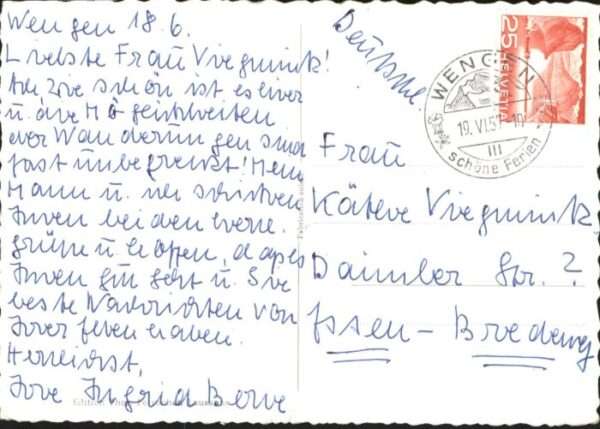 Wengen 18.6.
Liebste Frau Viegminck!
Ach wie schön ist es hier
u. die Möglichkeiten
der Wanderungen sind
fast unbegrenzt! Mein
Mann u. ich schicken
Ihnen beiden
grüße u. hoffen, daß es
Ihnen gut geht u. Sie
beste Nachrichten von
Ihrer haben.
Herzlichst,
Ihre Ingrid
Deutschl.
25
HELVETIA
WENGEN
19. VI. 19
III
schöne Ferien
Frau
Käthe Viegminck
Daimler Str. 2
Essen - Bredeney